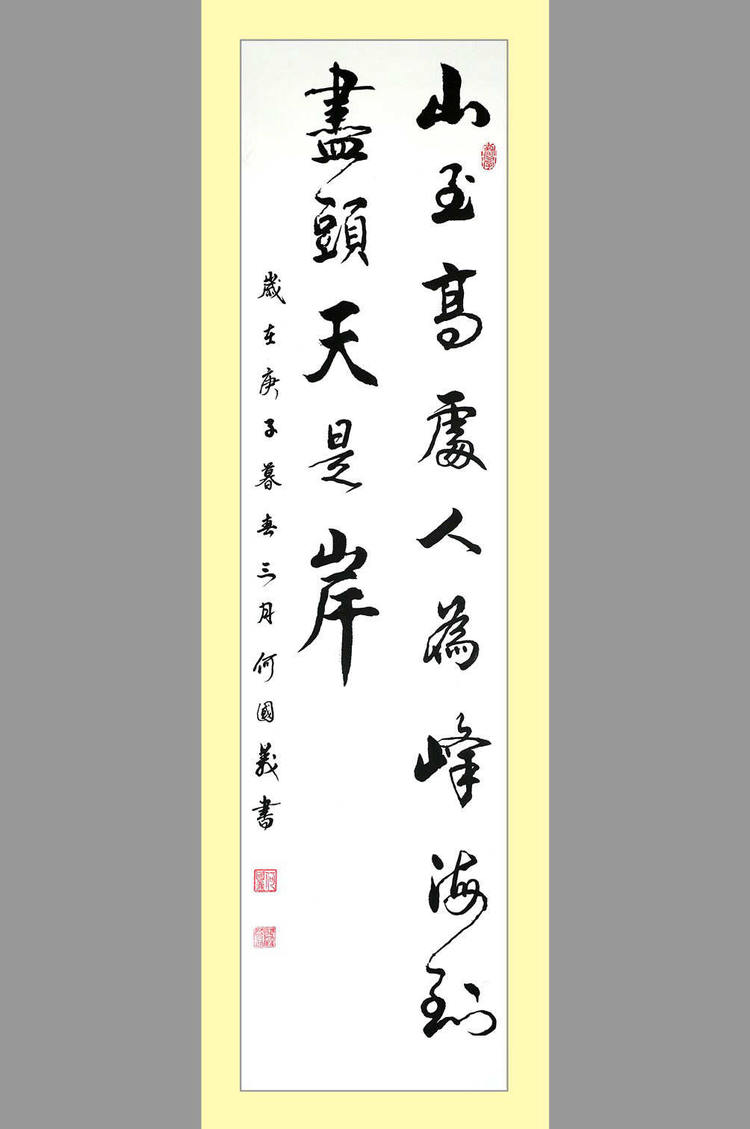 山至高處人為峰海到
盡頭天是岸
歲在庚子暮春三月何國義書